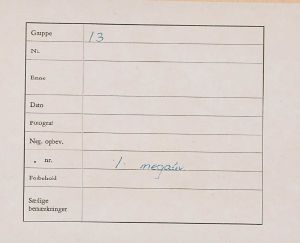 Gruppe 13
Nr.
Emne
Dato
Fotograf
Neg. opbev.
„ nr. 1. negativ
Forbehold
Særlige
bemærkninger